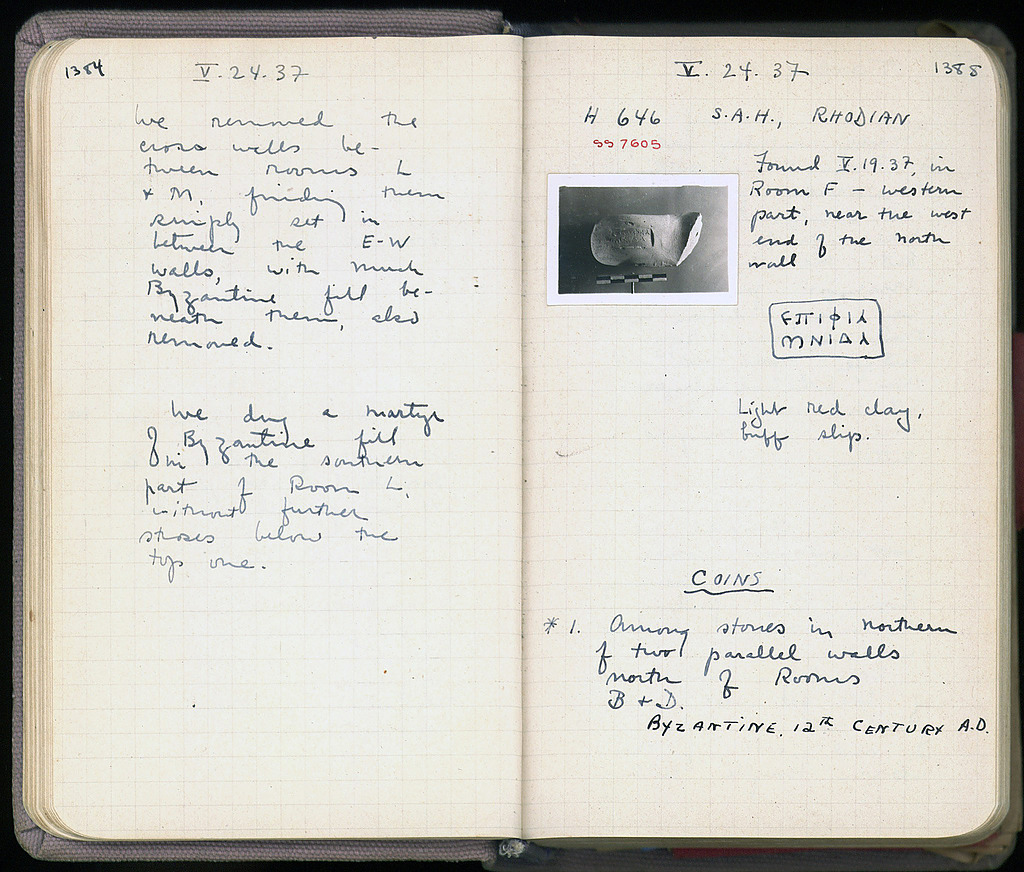 1384
V. 24. 37
We removed the
cross walls be-
tween rooms L
+ M, finding them
simply set in
between the E-W
walls, with much
Byzantine fill be-
neath them, also
removed.
We dug a martyr
of Byzantine fill
in the southern
part of Room L,
without further
stroses below the
top one.
V. 24. 37
1385
H 646 S.A.H., RHODIAN
SS 7605
Found V. 19. 37, in
Room F – western
part, near the west
end of the north
wall
ΕΠΙΦΙΛ
ΜΝΙΔΑ
Light red clay,
buff slip.
COINS
* 1. Among stones in northern
of two parallel walls
north of Rooms
B + D.
BYZANTINE, 12th CENTURY A.D.